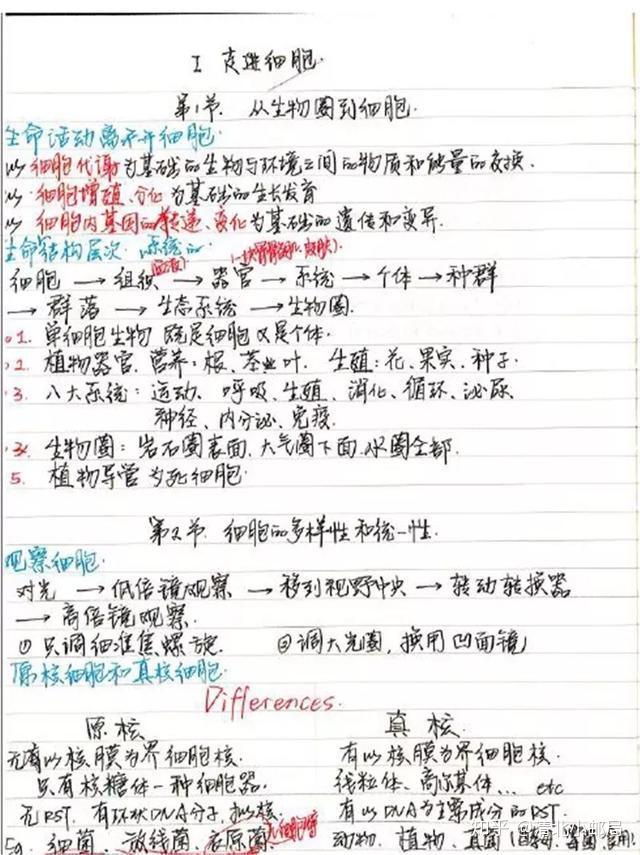 I 走进细胞.
第1节. 从生物圈到细胞.
生命活动离不开细胞.
以细胞代谢为基础的生物与环境之间的物质和能量的交换.
以细胞增殖、分化为基础的生长发育
以细胞内基因的传递、变化为基础的遗传和变异.
生命结构层次. 系统的
细胞 → 组织 → 器官 → 系统 → 个体 → 种群
→ 群落 → 生态系统 → 生物圈.
1. 单细胞生物 既是细胞又是个体.
2. 植物器官. 营养: 根、茎、叶. 生殖: 花、果实、种子.
3. 八大系统: 运动、呼吸、生殖、消化、循环、泌尿、
神经、内分泌、免疫.
3. 生物圈: 岩石圈表面、大气圈下面、水圈全部.
5. 植物导管为死细胞.
第2节. 细胞的多样性和统一性.
观察细胞.
对光 → 低倍镜观察 → 移到视野中央 → 转动转换器
→ 高倍镜观察.
① 只调细准焦螺旋. ② 调大光圈, 换用凹面镜
原核细胞和真核细胞.
Differences.
原核 真核.
无有以核膜为界细胞核. 有以核膜为界细胞核.
只有核糖体一种细胞器. 线粒体、高尔基体... etc
无RST. 有环状DNA分子, 拟核. 有以DNA为主要成分的RST.
Eg. 细菌、放线菌、衣原菌 动物、植物、真菌
知乎 @清北小邮局